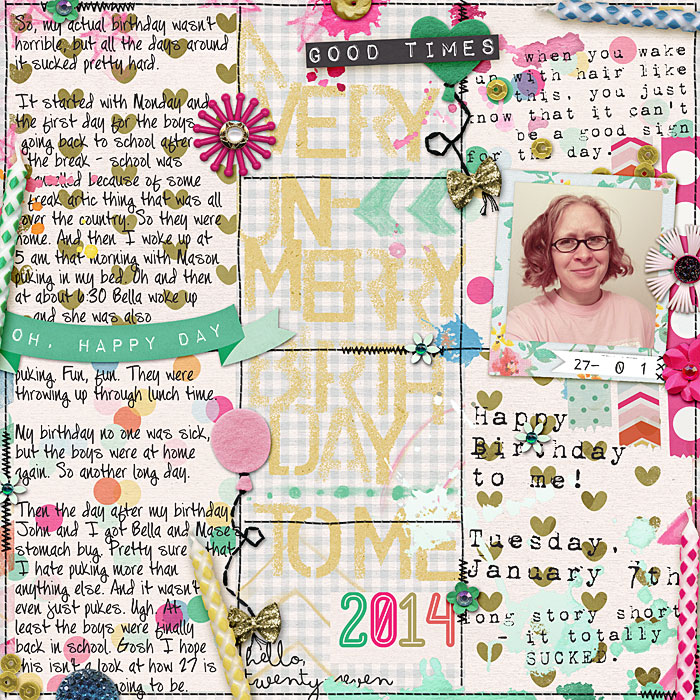 So, my actual birthday wasn't
horrible, but all the days around
it sucked pretty hard.
It started with Monday and
the first day for the boys
going back to school after
the break - school was
because of some
artic thing that was all
over the country. So they were
home. And then I woke up at
5 am that morning with Mason
puking in my bed. Oh and then
at about 6:30 Bella woke up
and she was also
OH, HAPPY DAY
puking. Fun, fun. They were
throwing up through lunch time.
My birthday no one was sick,
but the boys were at home
again. So another long day.
Then the day after my birthday
John and I got Bella and Mase's
stomach bug. Pretty sure that
I hate puking more than
anything else. And it wasn't
even just pukes. Ugh. At
least the boys were finally
back in school. Gosh I hope
this isn't a look at how 27 is
going to be.
A
VERY
UN-
MERRY
BIRTH
DAY
TO ME
2014
hello,
twenty seven
GOOD TIMES
when you wake
up with hair like
this, you just
know that it can't
be a good sign
for the day.
27- 0 1
Happy
Birthday
to me!
Tuesday,
January 7th
long story short
- it totally
SUCKED.